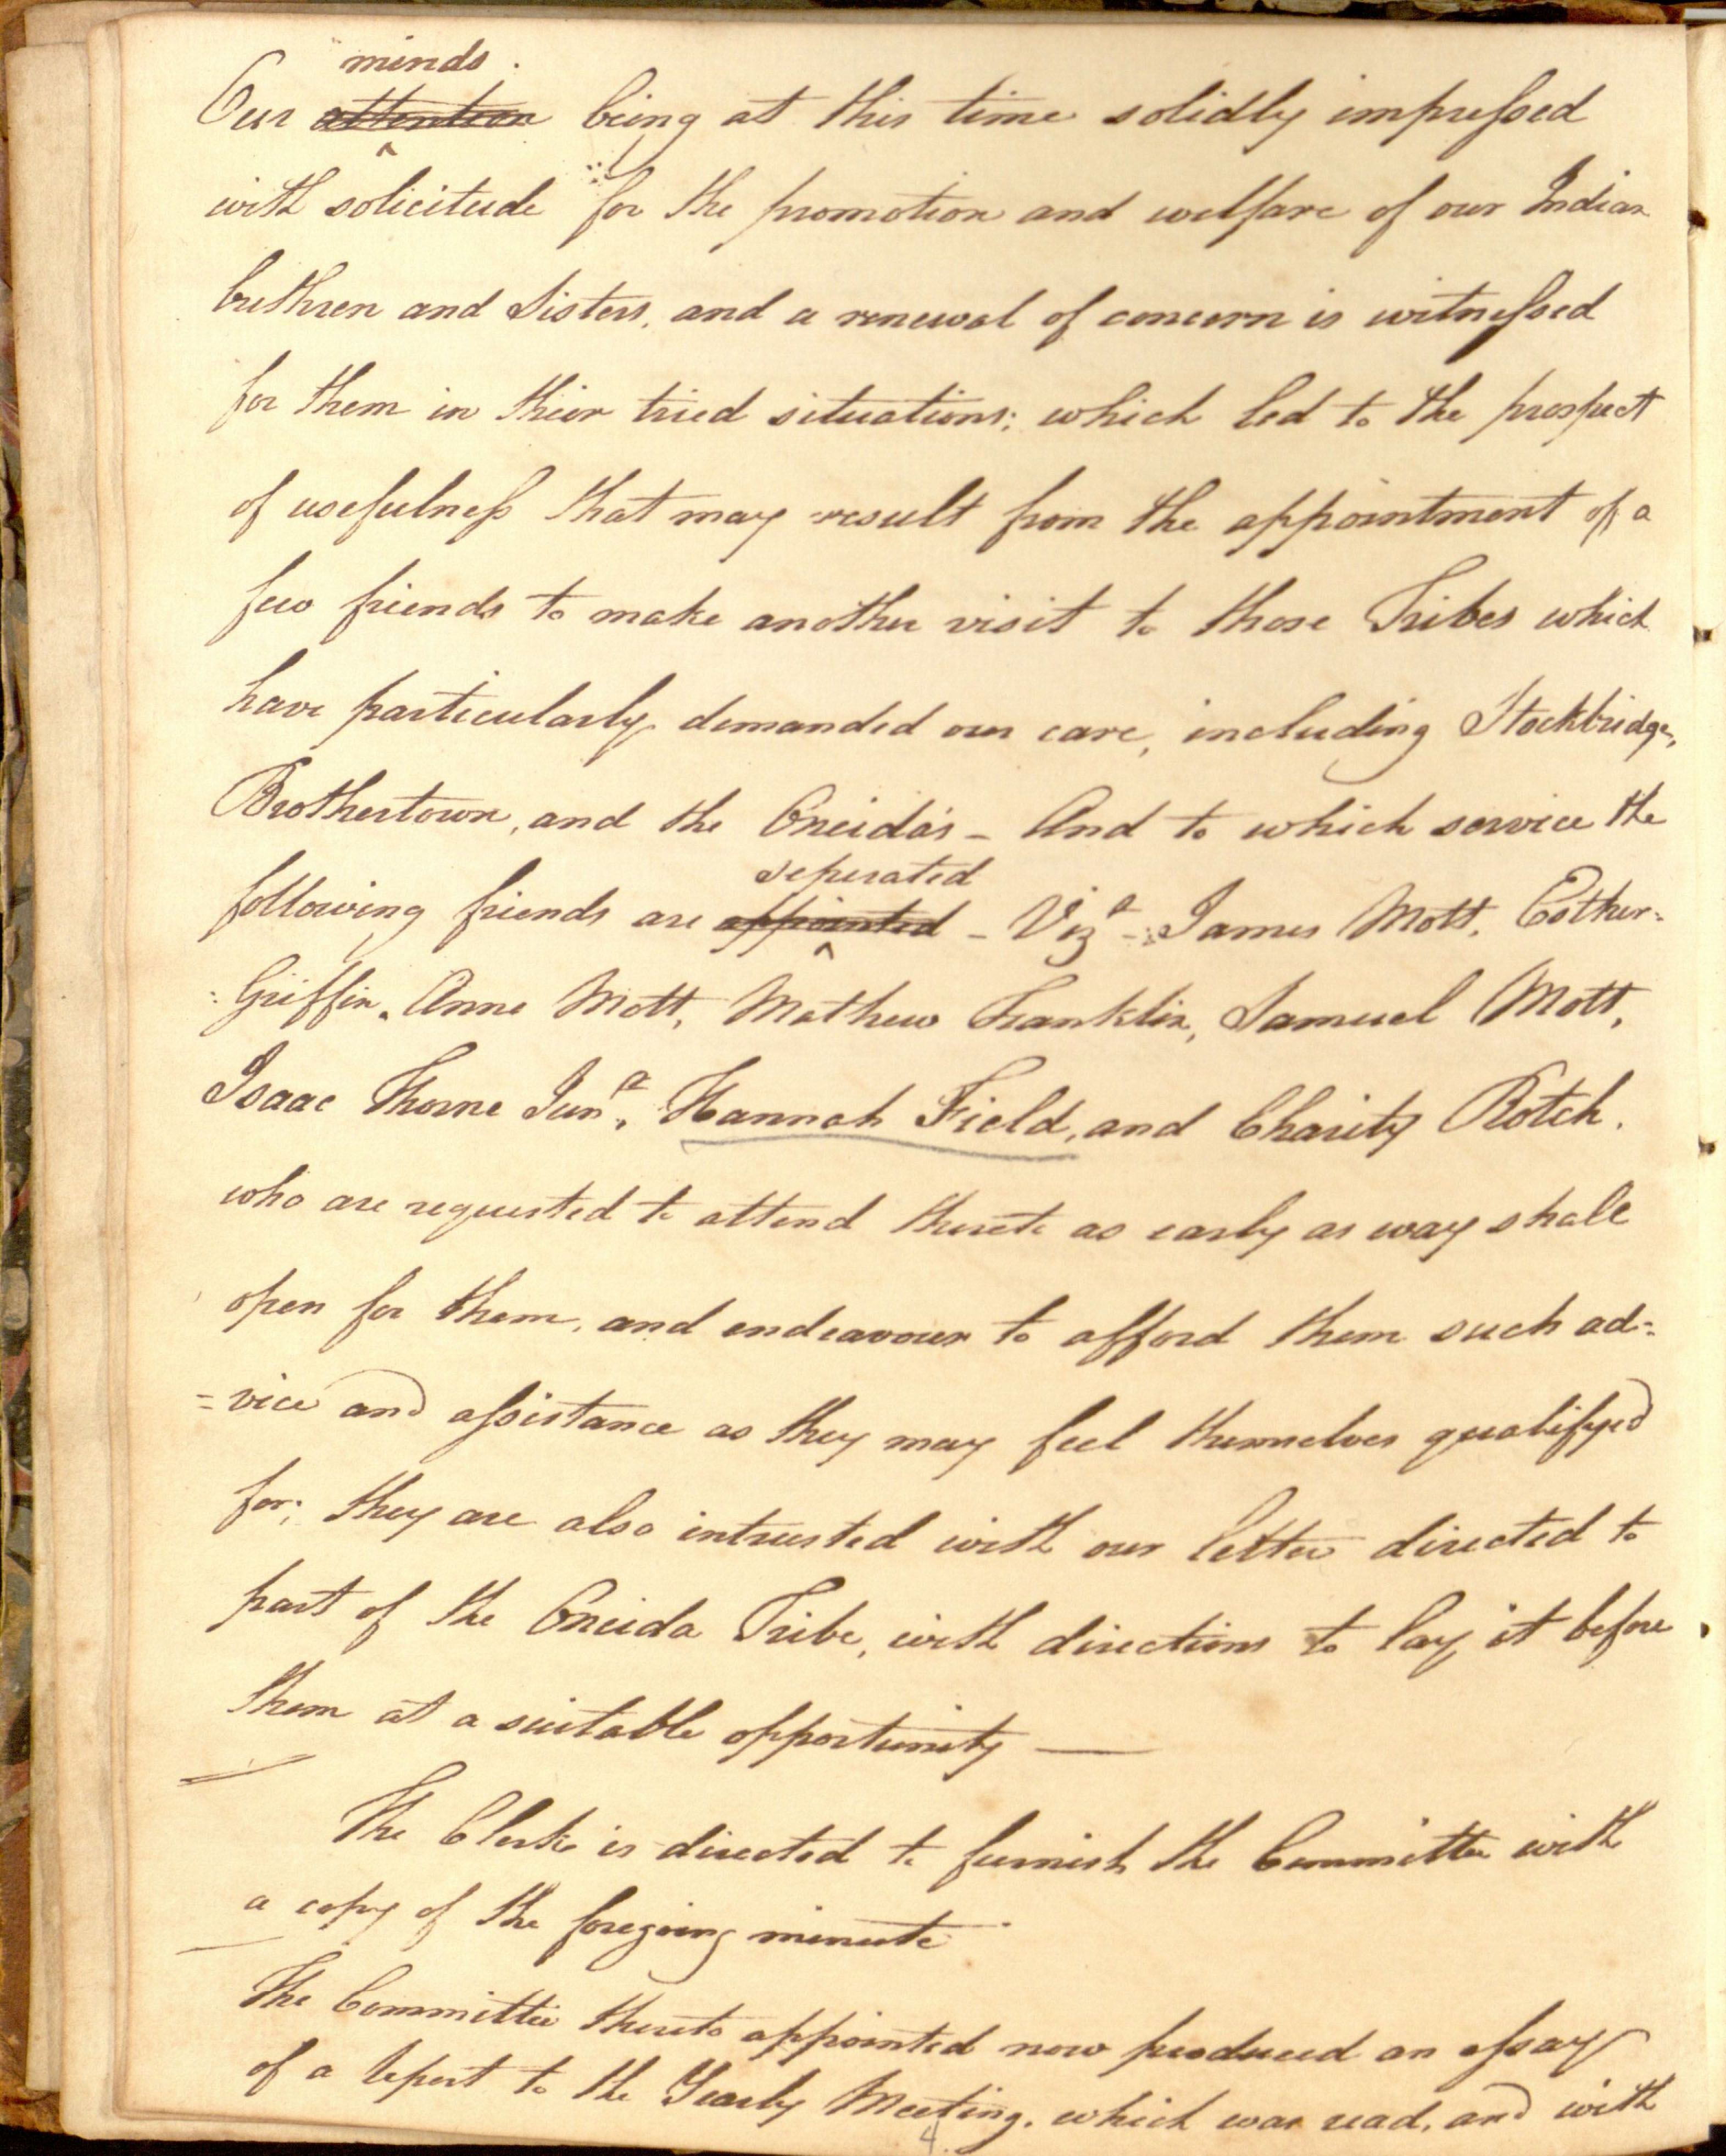 minds
Our attention being at this time solidly impressed
with solicitude for the promotion and welfare of our Indian
brethren and Sisters, and a renewal of concern is witnessed
for them in their tried situations; which led to the prospect
of usefulness that may result from the appointment of a
few friends to make another visit to those Tribes which
have particularly demanded our care, including Stockbridge,
Brothertown, and the Oneida's - And to which service the
seperated
following friends are appointed - Vizt - James Mott, Esther-
Griffin, Anne Mott, Mathew Franklin, Samuel Mott,
Isaac Thorne Junr, Hannah Field, and Charity Rotch.
who are requested to attend thereto as early as way shall
open for them, and endeavour to afford them such ad=
=vice and assistance as they may feel themselves qualifyed
for; they are also intrusted with our letter directed to
part of the Oneida Tribe, with directions to lay it before
them at a suitable opportunity —
The Clerke is directed to furnish the Committee with
a copy of the foregoing minute
The Committee thereto appointed now produced an essay
of a Report to the Yearly Meeting, which was read, and with
4